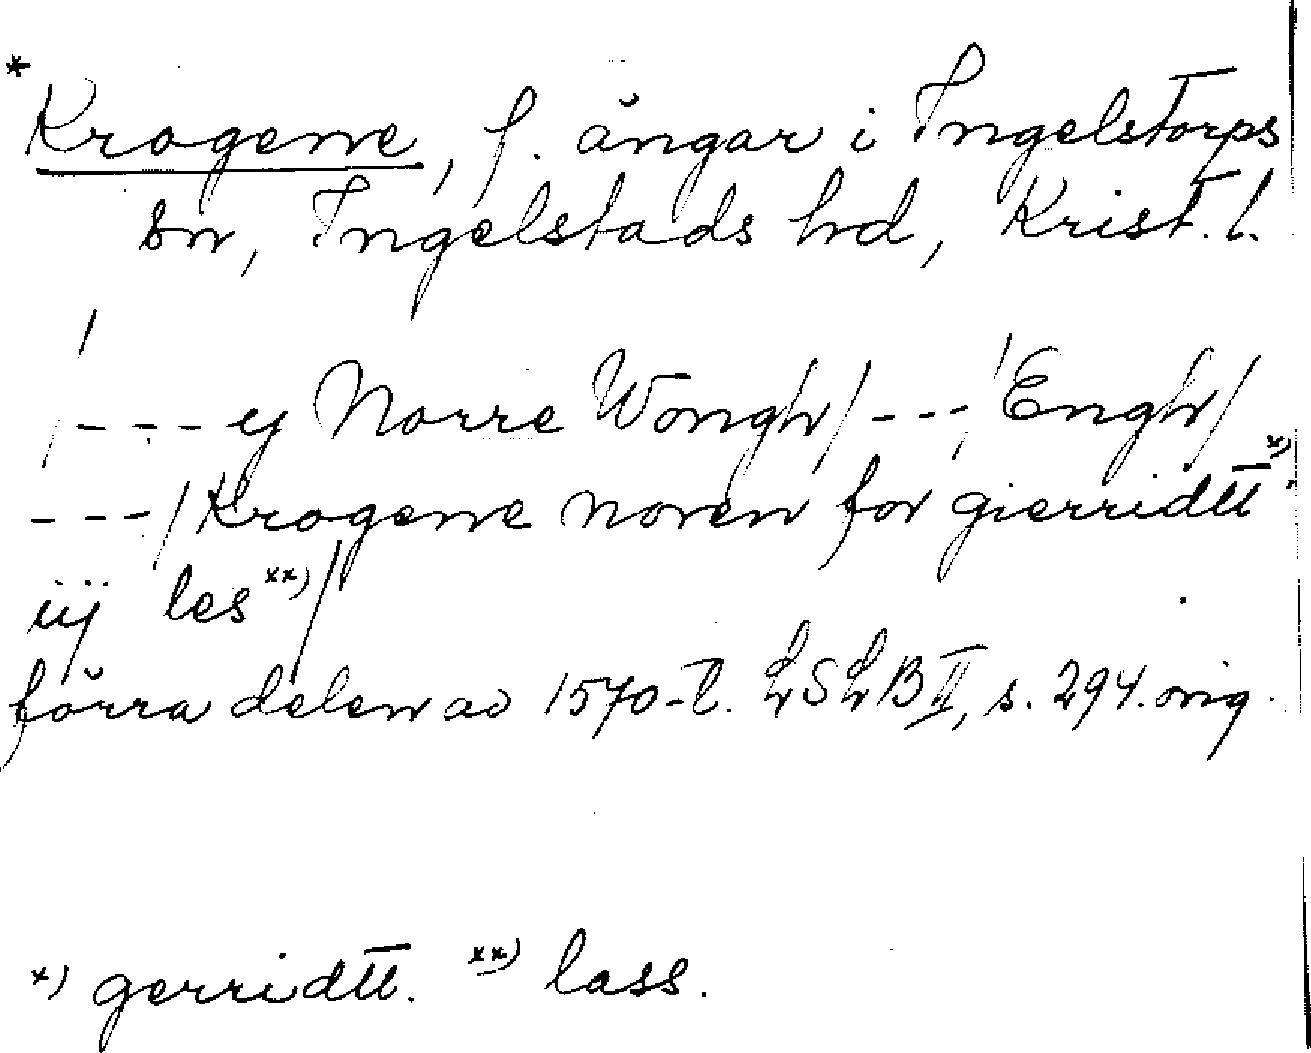 * Krogene, f. ängar i Ingelstorps
sn, Ingelstads hd, Krist. l.
/---ej Norre Wongh/---/Engh/
---/Krogene noren for gierridtt *)
iij les **)/
förra delen av 1570-t. LSLB II, s. 294. orig.
*) gerridtt. **) lass.